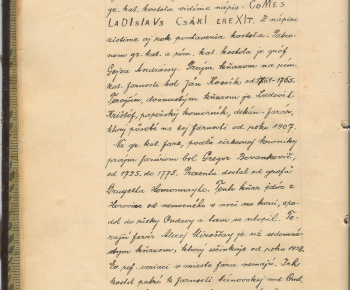 gr. kat. kostola vidíme nápis: COMES
LADISLAVS CSÁKI EREXIT. Z nápisu
zistíme aj rok postavenia kostola. Patro-
nom gr. kat. a rím. kat. kostola je gróf
Gejza Andrássy. Prvým kňazom na rím.
kat. farnosti bol Ján Kossik od 1761-1765.
Terajším, dvanástym kňazom je Ľudevít
Krištóf, pápežský komorník, dekan-farár,
ktorý pôsobí na tej farnosti od roku 1907.
Na gr. kat. fare, podľa cirkevnej kroniky
prvým farárom bol Gregor Bovankovič,
od 1725. do 1773. Prezentu dostal od grófa
Drugetha Homonnayho. Tento kňaz idúc z
Horoviec od nemocného v noci na koni, spa-
dol do riečky Ondavy a tam sa utopil. Te-
rajší farár Alexej Miroššay je už sedemná-
stym kňazom, ktorý účinkuje od roku 1928.
Ev. ref. veriaci v mieste faru nemajú. Ich
kostol patrí k farnosti trhovskej nad Ond.